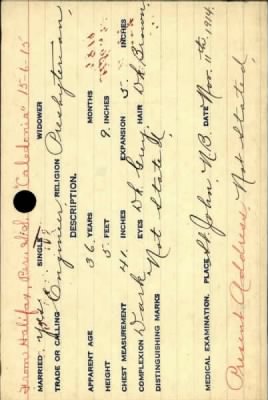 From: Halifax, Per: H.S. "Caledonia" 15-6-15
MARRIED Yes SINGLE WIDOWER
TRADE OR CALLING Engineer RELIGION Presbyterian
DESCRIPTION.
APPARENT AGE 36 YEARS MONTHS
HEIGHT 5 FEET 9 INCHES
CHEST MEASUREMENT 41 INCHES EXPANSION 5 INCHES
COMPLEXION Dark EYES Dk. Grey HAIR Dk. Brown
DISTINGUISHING MARKS Not Stated
MEDICAL EXAMINATION. PLACE St. John, N.B. DATE Nov. 11th, 1914.
Present Address: Not Stated